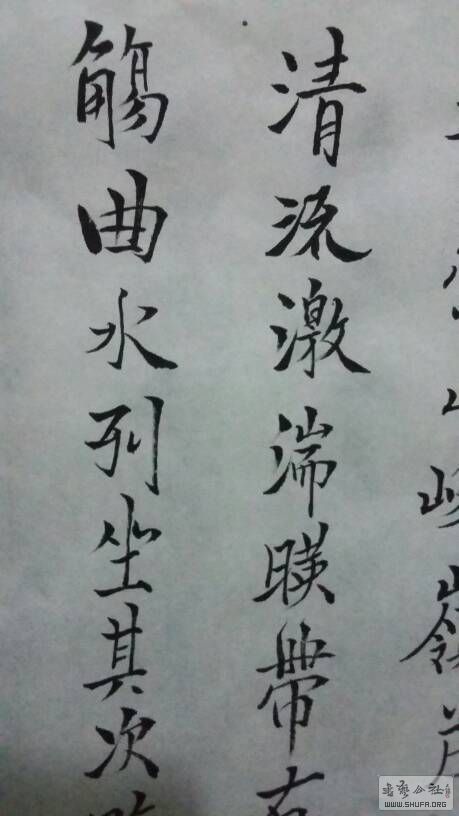 山峻嶺
清流激湍暎帶
觴曲水列坐其次
書藝公社
WWW.SHUFA.ORG